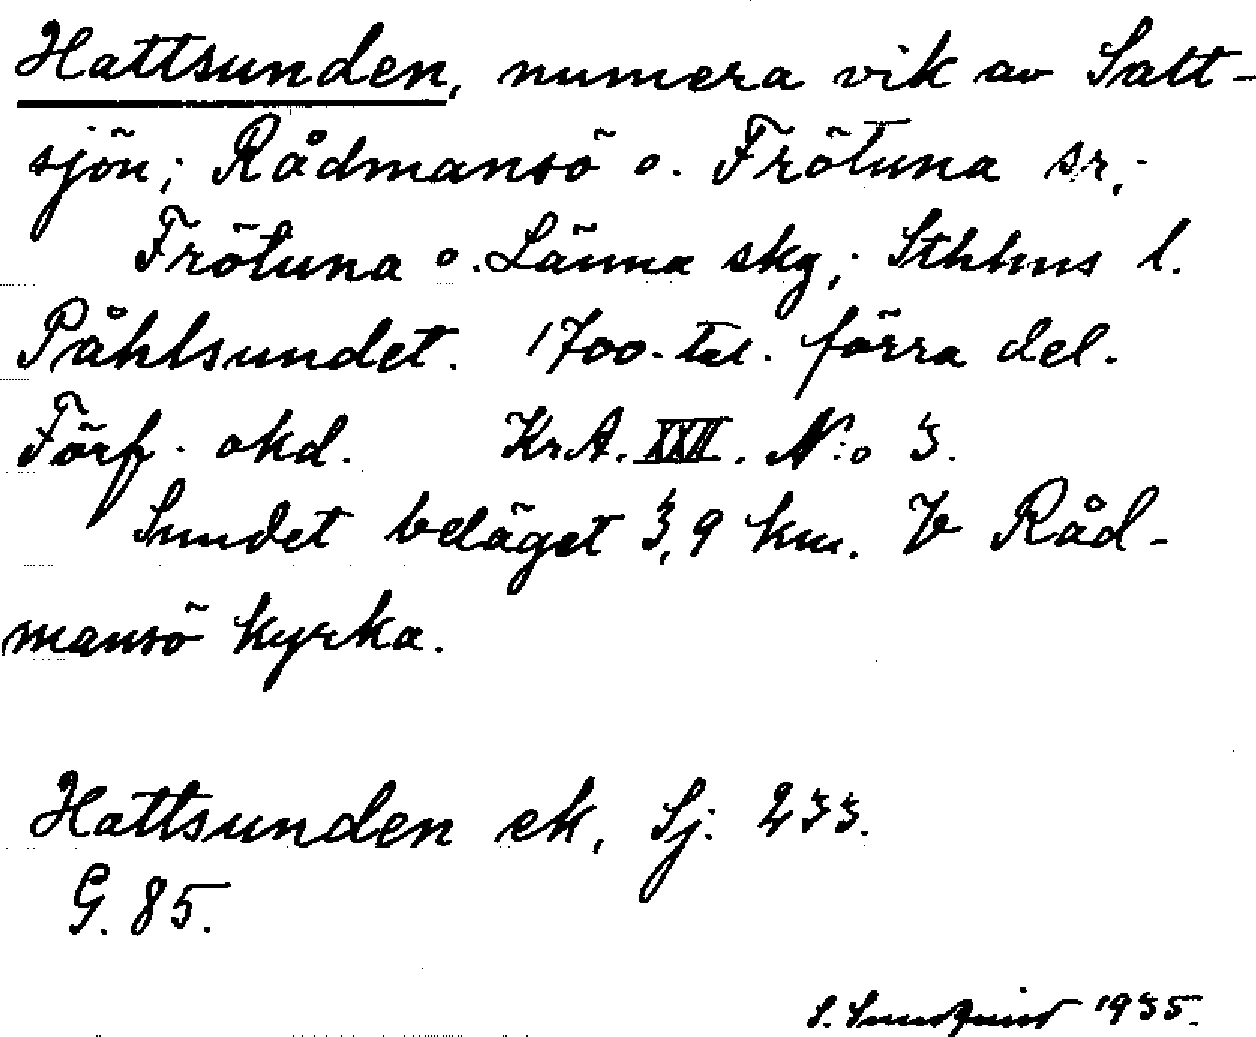 Hattsunden, numera vik av Salt-
sjön; Rådmansö o. Frötuna sr,
Frötuna o. Länna skg; Sthlms l.
Påhlsundet. 1700-tal. förra del.
Förf. okd. KrA. XXII. N:o 3.
Sundet beläget 3,9 km. V Råd-
mansö kyrka.
Hattsunden ek, Sj. 233.
G. 85.
S. Sundquist 1935.